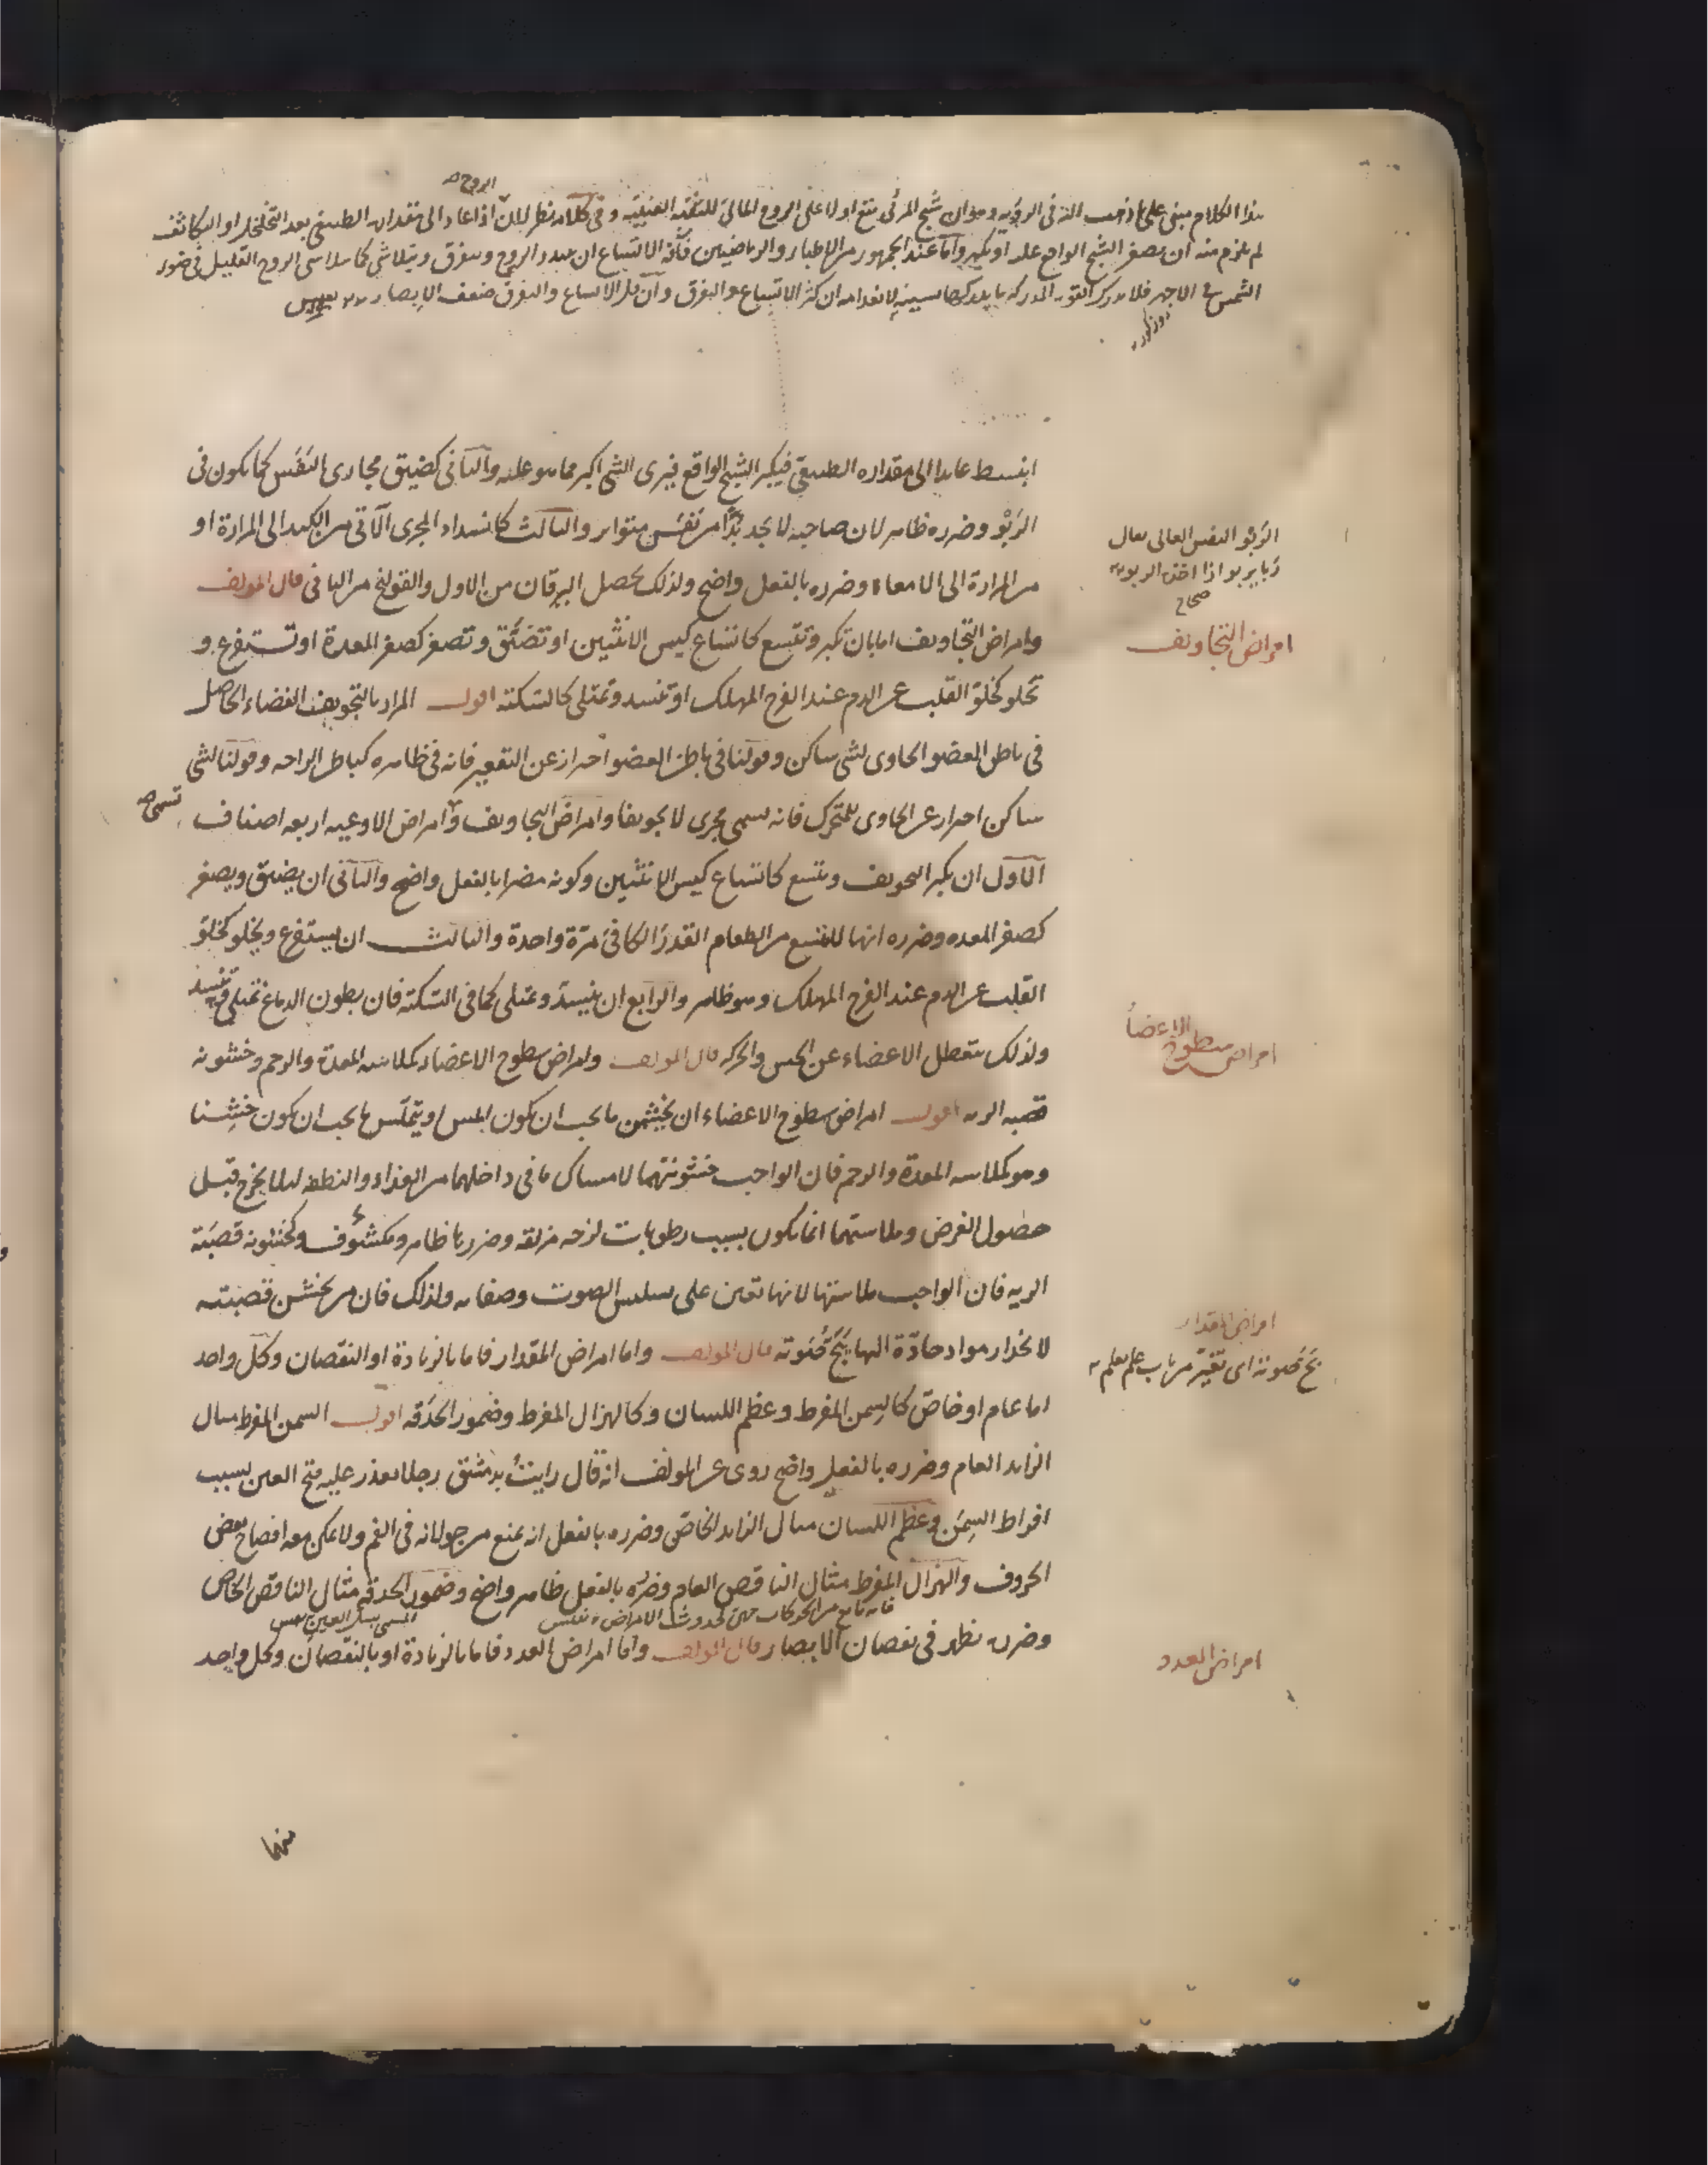 هذا الكلام مبنى على ما ذهب اليه فى الرؤيه وهو ان شبح المرئى يقع اولا على الروح المالئ للثقبه العنبيه وفى كلامه نظر لان الروح اذا عاد الى مقداره الطبيعى بعد التخلخل او التكاثف
لم يلزم منه ان يصغر الشبح الواقع عليه او يكبر واما عند الجمهور من الاطباء والرياضيين فآفة الاتساع ان يتبدد الروح ويتفرق ويتلاشى كما يتلاشى الروح القليل فى ضوء
الشمس فى الاجهر فلا يدرك القوه المدركه ما يدركها لانعدامه ان كثر الاتساع والتفرق وان قل الاتساع والتفرق ضعف الابصار
انبسط عايدا الى مقداره الطبيعى فيكبر الشبح الواقع فيرى الشى اكبر مما هو عليه والثانى كضيق مجارى النَفَس كما يكون فى
الرَبْو وضرره ظاهر لان صاحبه لا يجد بُدًّا من نَفَس متواتر والثالث كانسداد المجرى الآتى من الكبد الى المرارة او
من المرارة الى الامعاء وضرره بالفعل واضح ولذلك يحصل اليرقان من الاول والقولنج من الثانى قال المولف
وامراض التجاويف اما بان تكبر وتتسع كاتساع كيس الانثيين او تضيّق وتصغر كصغر المعدة او تستفرغ و
تخلو كخلوّ القلب عن الدم عند الفرح المهلك او تنسد وتمتلى كالسكته اقول المراد بالتجويف الفضاء الحاصل
فى باطن العضو الحاوى لشى ساكن وقولنا فى باطن العضو احتراز عن التقعير فانه فى ظاهره كباطن الراحه وقولنا لشى
ساكن احتراز عن الحاوى للمتحرك فانه يسمى مجرى لا تجويفا وامراض التجاويف وتسمى امراض الاوعيه اربعه اصناف
الاول ان يكبر التجويف ويتسع كاتساع كيس الانثيين وكونه مضرا بالفعل واضح والثانى ان يضيق ويصغر
كصغر المعده وضرره انها لا تتسع من الطعام القدر الكافى مرّة واحدة والثالث ان يستفرغ ويخلو كخلوّ
القلب عن الدم عند الفرح المهلك وهو ظاهر والرابع ان ينسدّ ويمتلى كما فى السّكته فان بطون الدماغ تمتلى فيه وتنسد
ولذلك تتعطل الاعضاء عن الحس والحركه قال المولف وامراض سطوح الاعضاء كملاسه المعدة والرحم وخشونه
قصبه الريه اقول امراض سطوح الاعضاء ان يخشن ما يجب ان يكون املس او يتملّس ما يجب ان يكون خشِنا
وهو كملاسه المعدة والرحم فان الواجب خشونتهما لامساك ما فى داخلهما من الغذاء والنطفه ليلا يخرج قبل
حصول الغرض وملاستهما انما يكون بسبب رطوبات لزجه مزلقه وضررها ظاهر ومكشوف وكخشونه قصَبَة
الريه فان الواجب ملاستها لانها تعين على سلس الصوت وصفائه ولذلك فان من يخشن قصبته
لانحدار مواد حادّة اليها يَبَحّ صَوته قال المولف واما امراض المقدار فاما بالزيادة او النقصان وكلّ واحد
اما عام او خاصّ كالسِمن المفرط وعظم اللسان وكالهزال المفرط وضمور الحَدَقه اقول السمن المفرط مثال
الزايد العام وضرره بالفعل واضح روى عن المولف انه قال رايتُ بدمشق رجلا تعذر عليه فتح العين بسبب
افراط السِمَن وعظم اللسان مثال الزايد الخاصّ وضرره بالفعل انه يمنع من جولانه فى الفم ولا يمكن معه افصاح بعض
الحروف والهزال المفرط مثال الناقص العام وضرره بالفعل ظاهر واضح وضمور الحدقه مثال الناقص الخاص
فانه مانع من الحركات معين لحدوث الامراض
المسمى بسل العين
وضرره يظهر فى نقصان الابصار قال المولف واما امراض العدد فاما بالزيادة او بالنقصان وكل واحد
الرَبْو النفس العالى يقال
رَبا يربو اذا اخذه الربو
صحاح
امراض التجاويف
امراض سطوح الاعضا
امراض المقدار
بَحّ صَوته اى تغيّر من باب علم يعلم
امراض العدد
منهما